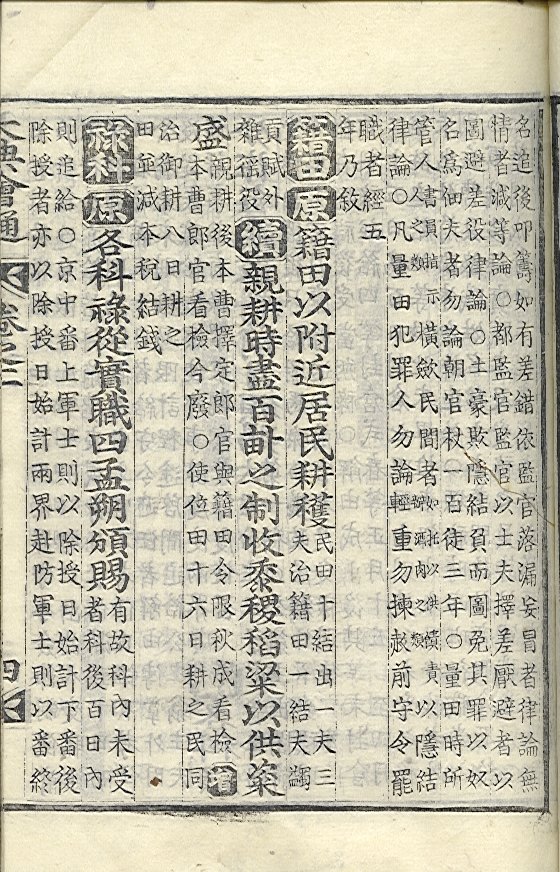 名追後叩籌如有差錯依監官落漏妄冒者律論無
情者減等論○都監官監官以士夫擇差厭避者以
圖避差役律論○土豪欺隱結負而圖免其罪以奴
名爲佃夫者勿論朝官杖一百徒三年○量田時所
管人書員指示人之類橫歛民間者如托以供饋辦酒肉之類責以隱結
律論○凡量田犯罪人勿論輕重勿揀赦前守令罷
職者經五
年乃敘
籍田原籍田以附近居民耕穫民田十結出一夫三
夫治籍田一結夫蠲
貢賦外
雜徭役續親耕時盡百畝之制收黍稷稻粱以供粢
盛親耕後本曹擇定郎官與籍田令限秋成看檢增
本曹郎官看檢今廢○使位田十六日耕之民同
治御耕八日耕之
田並減本稅結錢
祿科原各科祿從實職四孟朔頒賜有故科內未受
者科後百日內
則追給○京中番上軍士則以除授日始計下番後
除授者亦以除授日始計兩界赴防軍士則以番終
大典會通 卷之二 四